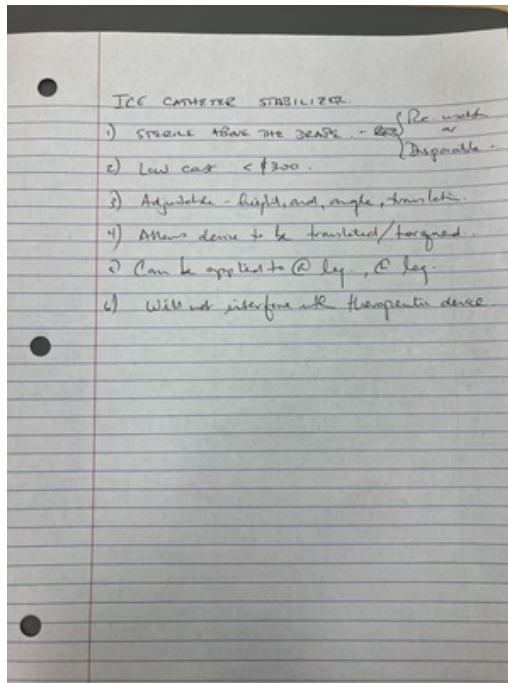 ICE CATHETER STABILIZER.
1) STERILE ABOVE THE DRAPE. - { Re-usable or Disposable.
2) Low cost < $300.
3) Adjustable - height, and, angle, translatn.
4) Allows device to be translated/torqued.
5) Can be applied to Ⓡ leg., Ⓛ leg.
6) Will not interfere with therapeutic device.